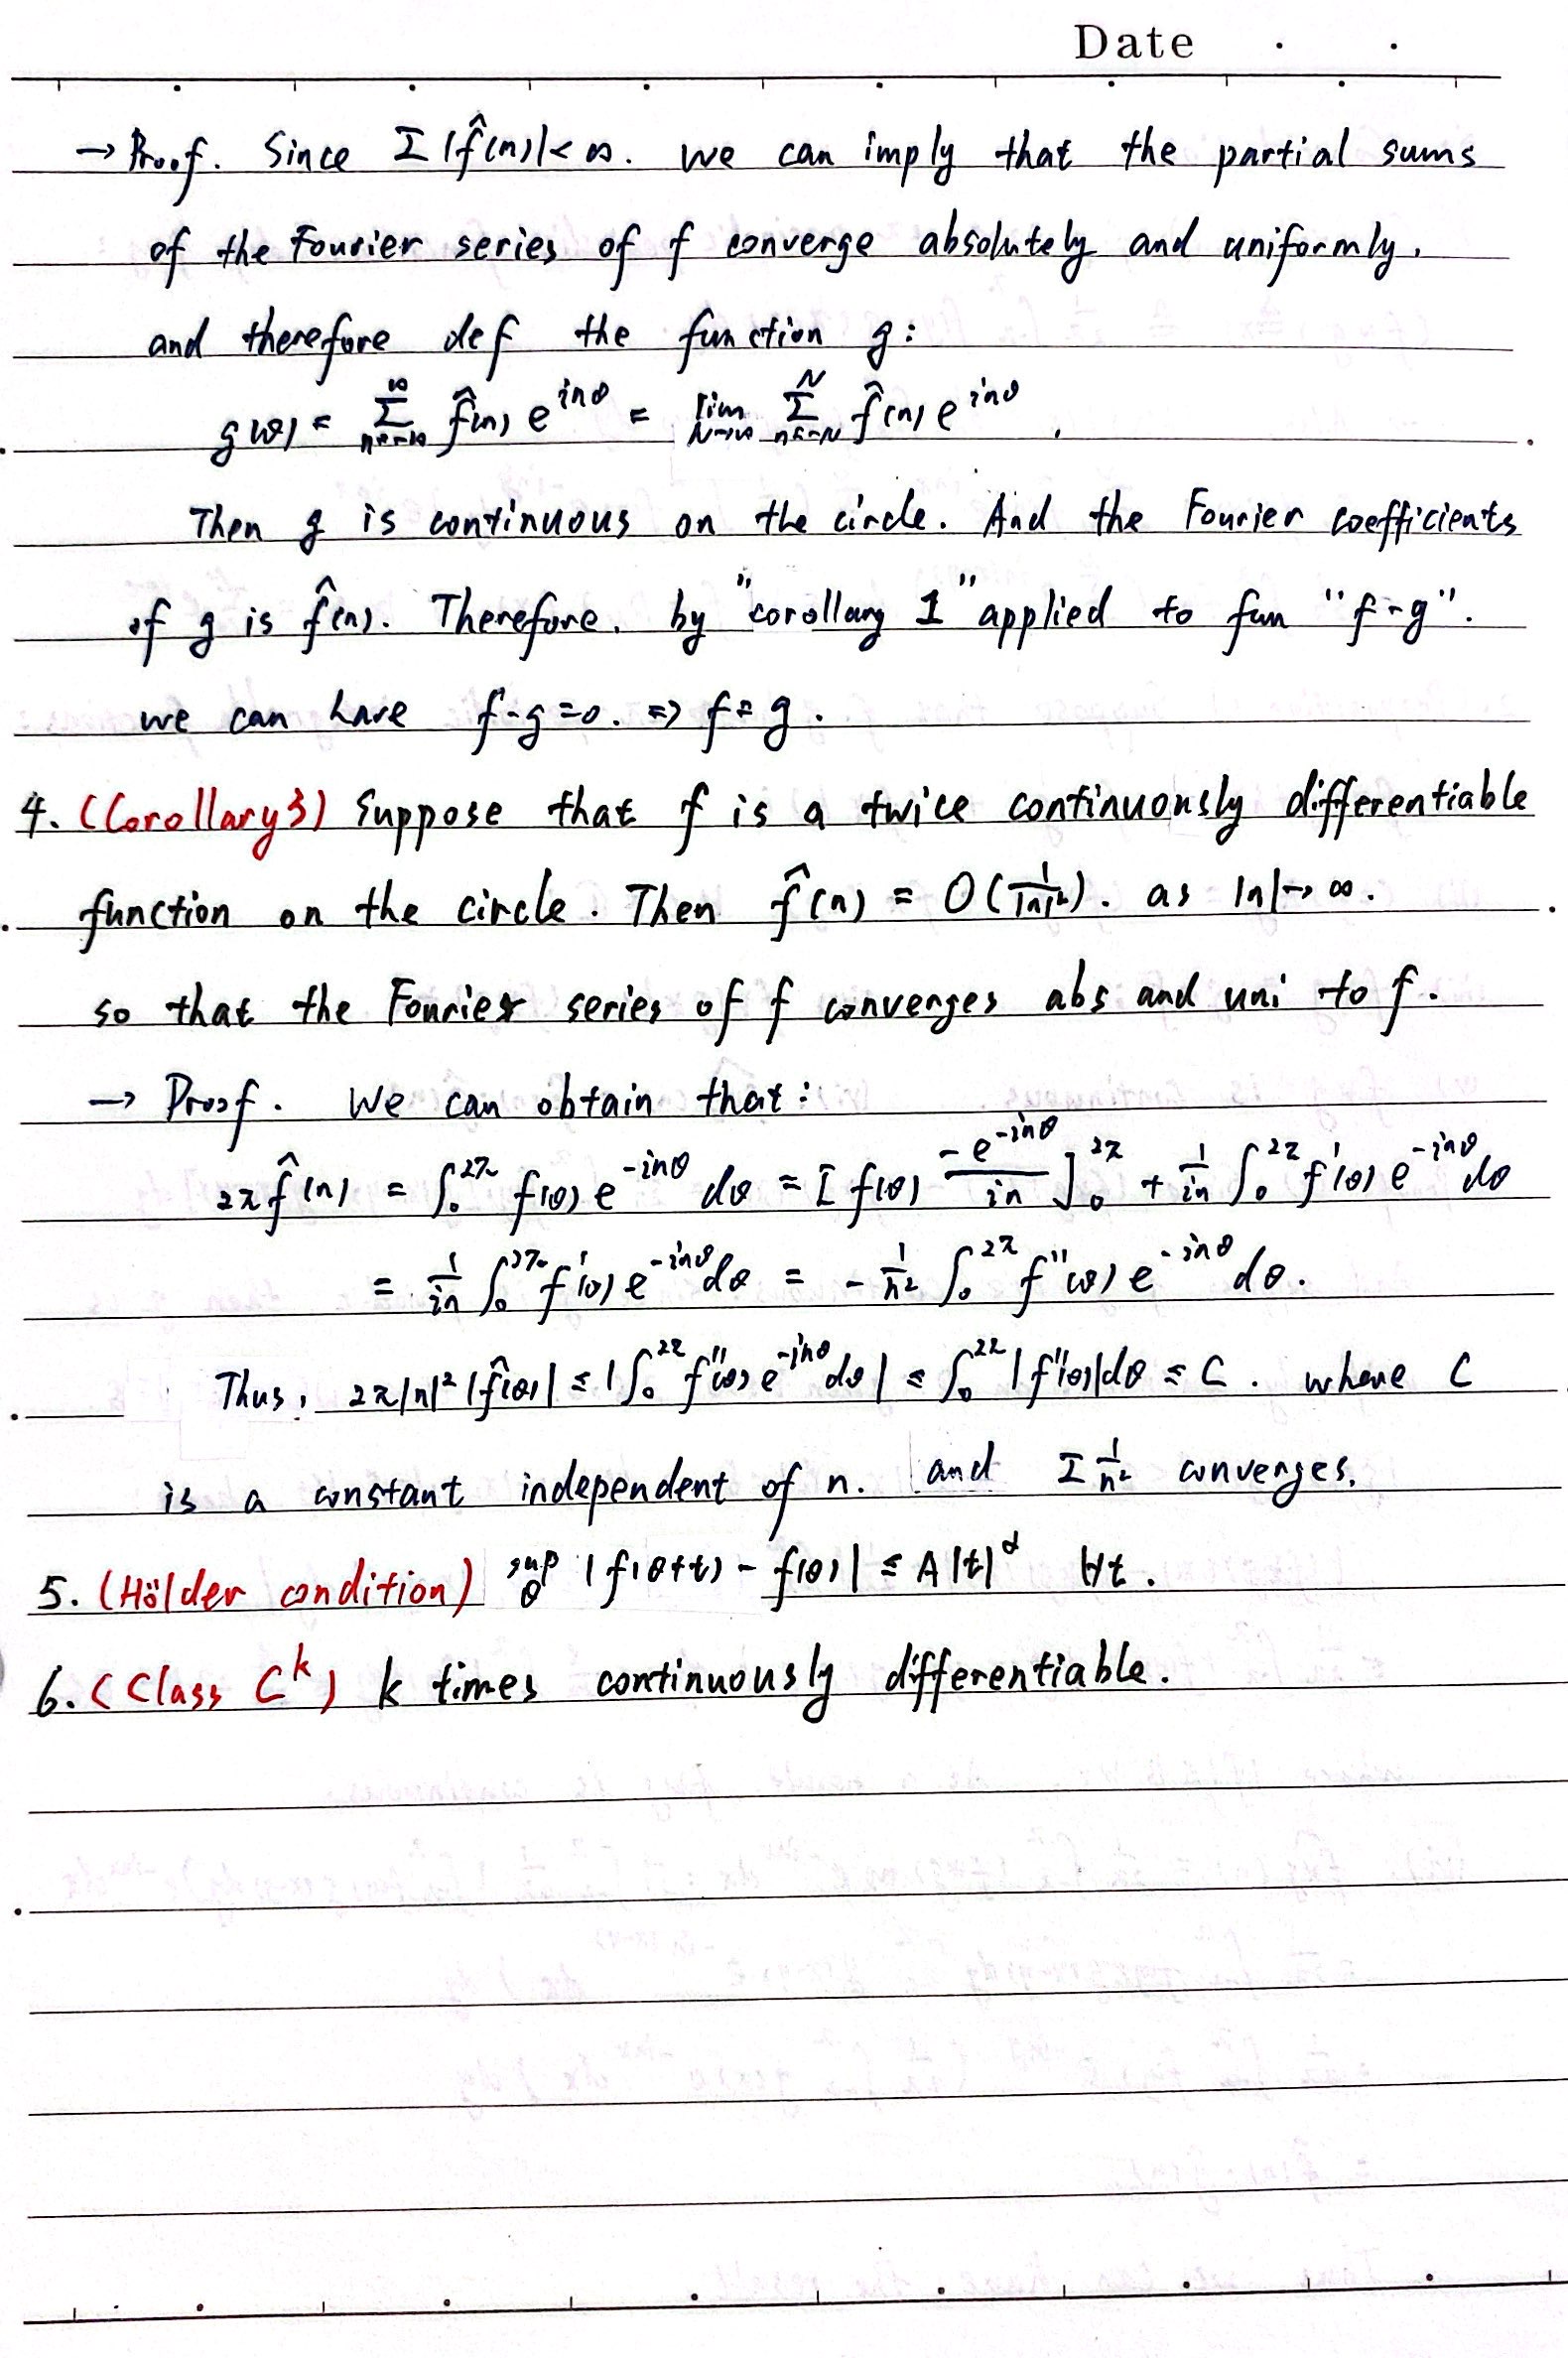 Date . .
→ Proof. Since Σ|f̂(n)| < ∞. we can imply that the partial sums
of the Fourier series of f converge absolutely and uniformly.
and therefore def the function g:
g(θ) = Σ_{n=-∞}^{∞} f̂(n) e^{inθ} = lim_{N→∞} Σ_{n=-N}^{N} f̂(n) e^{inθ},
Then g is continuous on the circle. And the Fourier coefficients
of g is f̂(n). Therefore. by "corollary 1" applied to fun "f-g".
we can have f-g=0. => f=g.
4. (Corollary3) Suppose that f is a twice continuously differentiable
function on the circle. Then f̂(n) = O(1/|n|²). as |n|→∞.
so that the Fourier series of f converges abs and uni to f.
→ Proof. We can obtain that:
2π f̂(n) = ∫_0^{2π} f(θ) e^{-inθ} dθ = [f(θ) (-e^{-inθ})/(in)]_0^{2π} + 1/(in) ∫_0^{2π} f'(θ) e^{-inθ} dθ
= 1/(in) ∫_0^{2π} f'(θ) e^{-inθ} dθ = - 1/n² ∫_0^{2π} f''(θ) e^{-inθ} dθ.
Thus, 2π|n|² |f̂(θ)| ≤ |∫_0^{2π} f''(θ) e^{-inθ} dθ| ≤ ∫_0^{2π} |f''(θ)|dθ ≤ C. where C
is a constant independent of n. and Σ 1/n² converges.
5. (Hölder condition) sup_θ |f(θ+t) - f(θ)| ≤ A|t|^α ∀t.
6. (Class C^k) k times continuously differentiable.